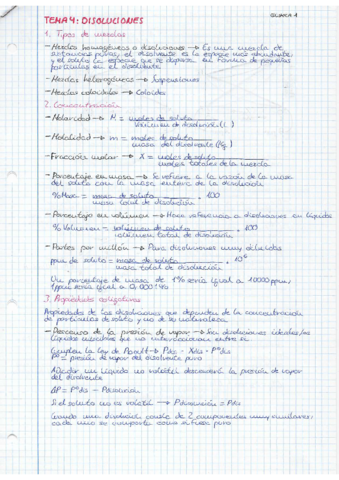 QUIMICA 1
TEMA 4: DISOLUCIONES
1. Tipos de mezclas
- Mezclas homogéneas o disoluciones → Es una mezcla de
sustancias puras, el disolvente es la especie más abundante
y el soluto la especie que se dispersa en forma de pequeñas
partículas en el disolvente
- Mezclas heterogéneas → Suspensiones
- Mezclas coloidales → Coloides
2. Concentración
- Molaridad → M = moles de soluto / Volumen de disolución (L)
- Molalidad → m = moles de soluto / masa del disolvente (Kg)
- Fracción molar → X = moles de soluto / moles totales de la mezcla
- Porcentaje en masa → Se refiere a la razón de la masa
del soluto con la masa entera de la disolución
% Masa = masa de soluto / masa total de disolución · 100
- Porcentaje en volumen → Hace referencia a disoluciones en líquidos
% Volumen = volumen de soluto / volumen total de disolución · 100
- Partes por millón → Para disoluciones muy diluidas
ppm de soluto = masa de soluto / masa total de disolución · 10⁶
Un porcentaje de masa de 1% sería igual a 10000 ppm,
1 ppm sería igual a 0,0001%
3. Propiedades coligativas
Propiedades de las disoluciones que dependen de la concentración
de partículas de soluto y no de su naturaleza
- Descenso de la presión de vapor → En disoluciones ideales/en
líquidos miscibles que no interaccionan entre sí
Cumplen la Ley de Raoult → Pdis = Xdis · P°dis
P° = presión de vapor del disolvente puro
Añadir un líquido no volátil descenderá la presión de vapor
del disolvente
ΔP = P°dis - Pdisolución
Si el soluto no es volátil → Pdisolución = Pdis
Cuando una disolución consta de 2 componentes muy similares:
cada uno se comporta como si fuese puro